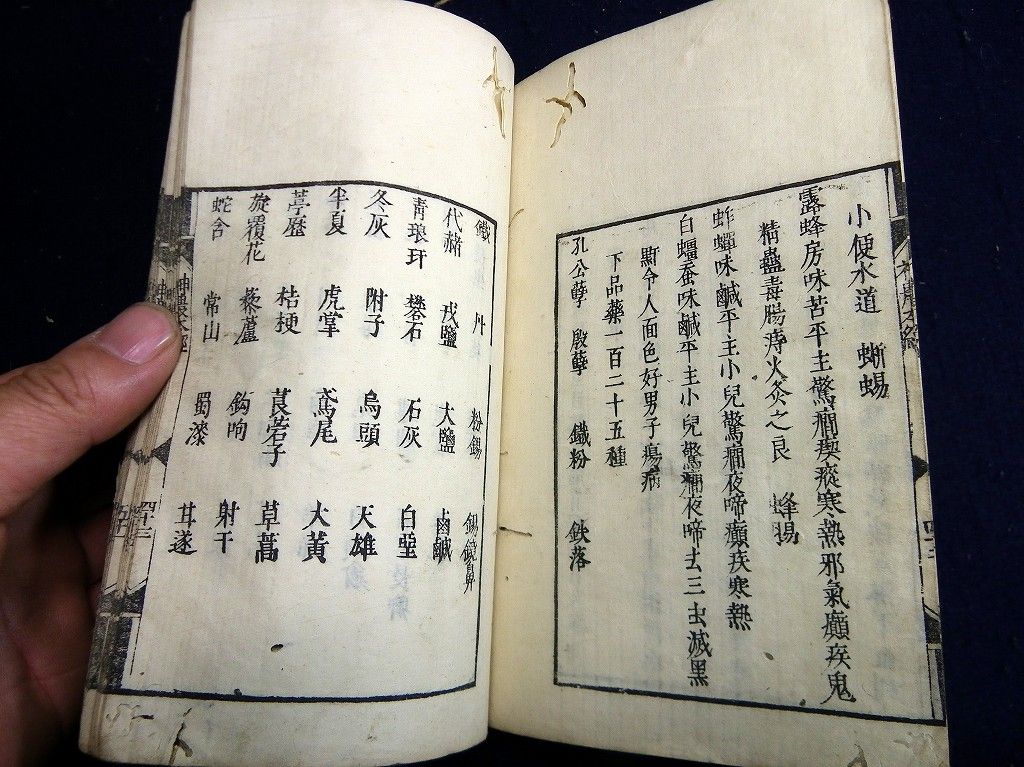 小便水道　蜥蜴
露蜂房味苦平主驚癇瘈瘲寒熱邪氣癲疾鬼
精蠱毒腸痔火灸之良　蜂揚
蚱蟬味鹹平主小兒驚癇夜啼癲疾寒熱
白殭蚕味鹹平主小兒驚癇夜啼去三虫滅黑
䵟令人面色好男子瘍病
下品藥一百二十五種
孔公孽　殷孽　鐵粉　鉄落
鐵　丹　粉錫　錫鏡鼻
代赭　戎鹽　大鹽　鹵鹹
靑琅玕　礬石　石灰　白堊
冬灰　附子　烏頭　天雄
半夏　虎掌　鳶尾　大黃
葶歷　桔梗　莨菪子　草蒿
旋覆花　藜蘆　鈎吻　射干
蛇含　常山　蜀漆　甘遂
神農本經